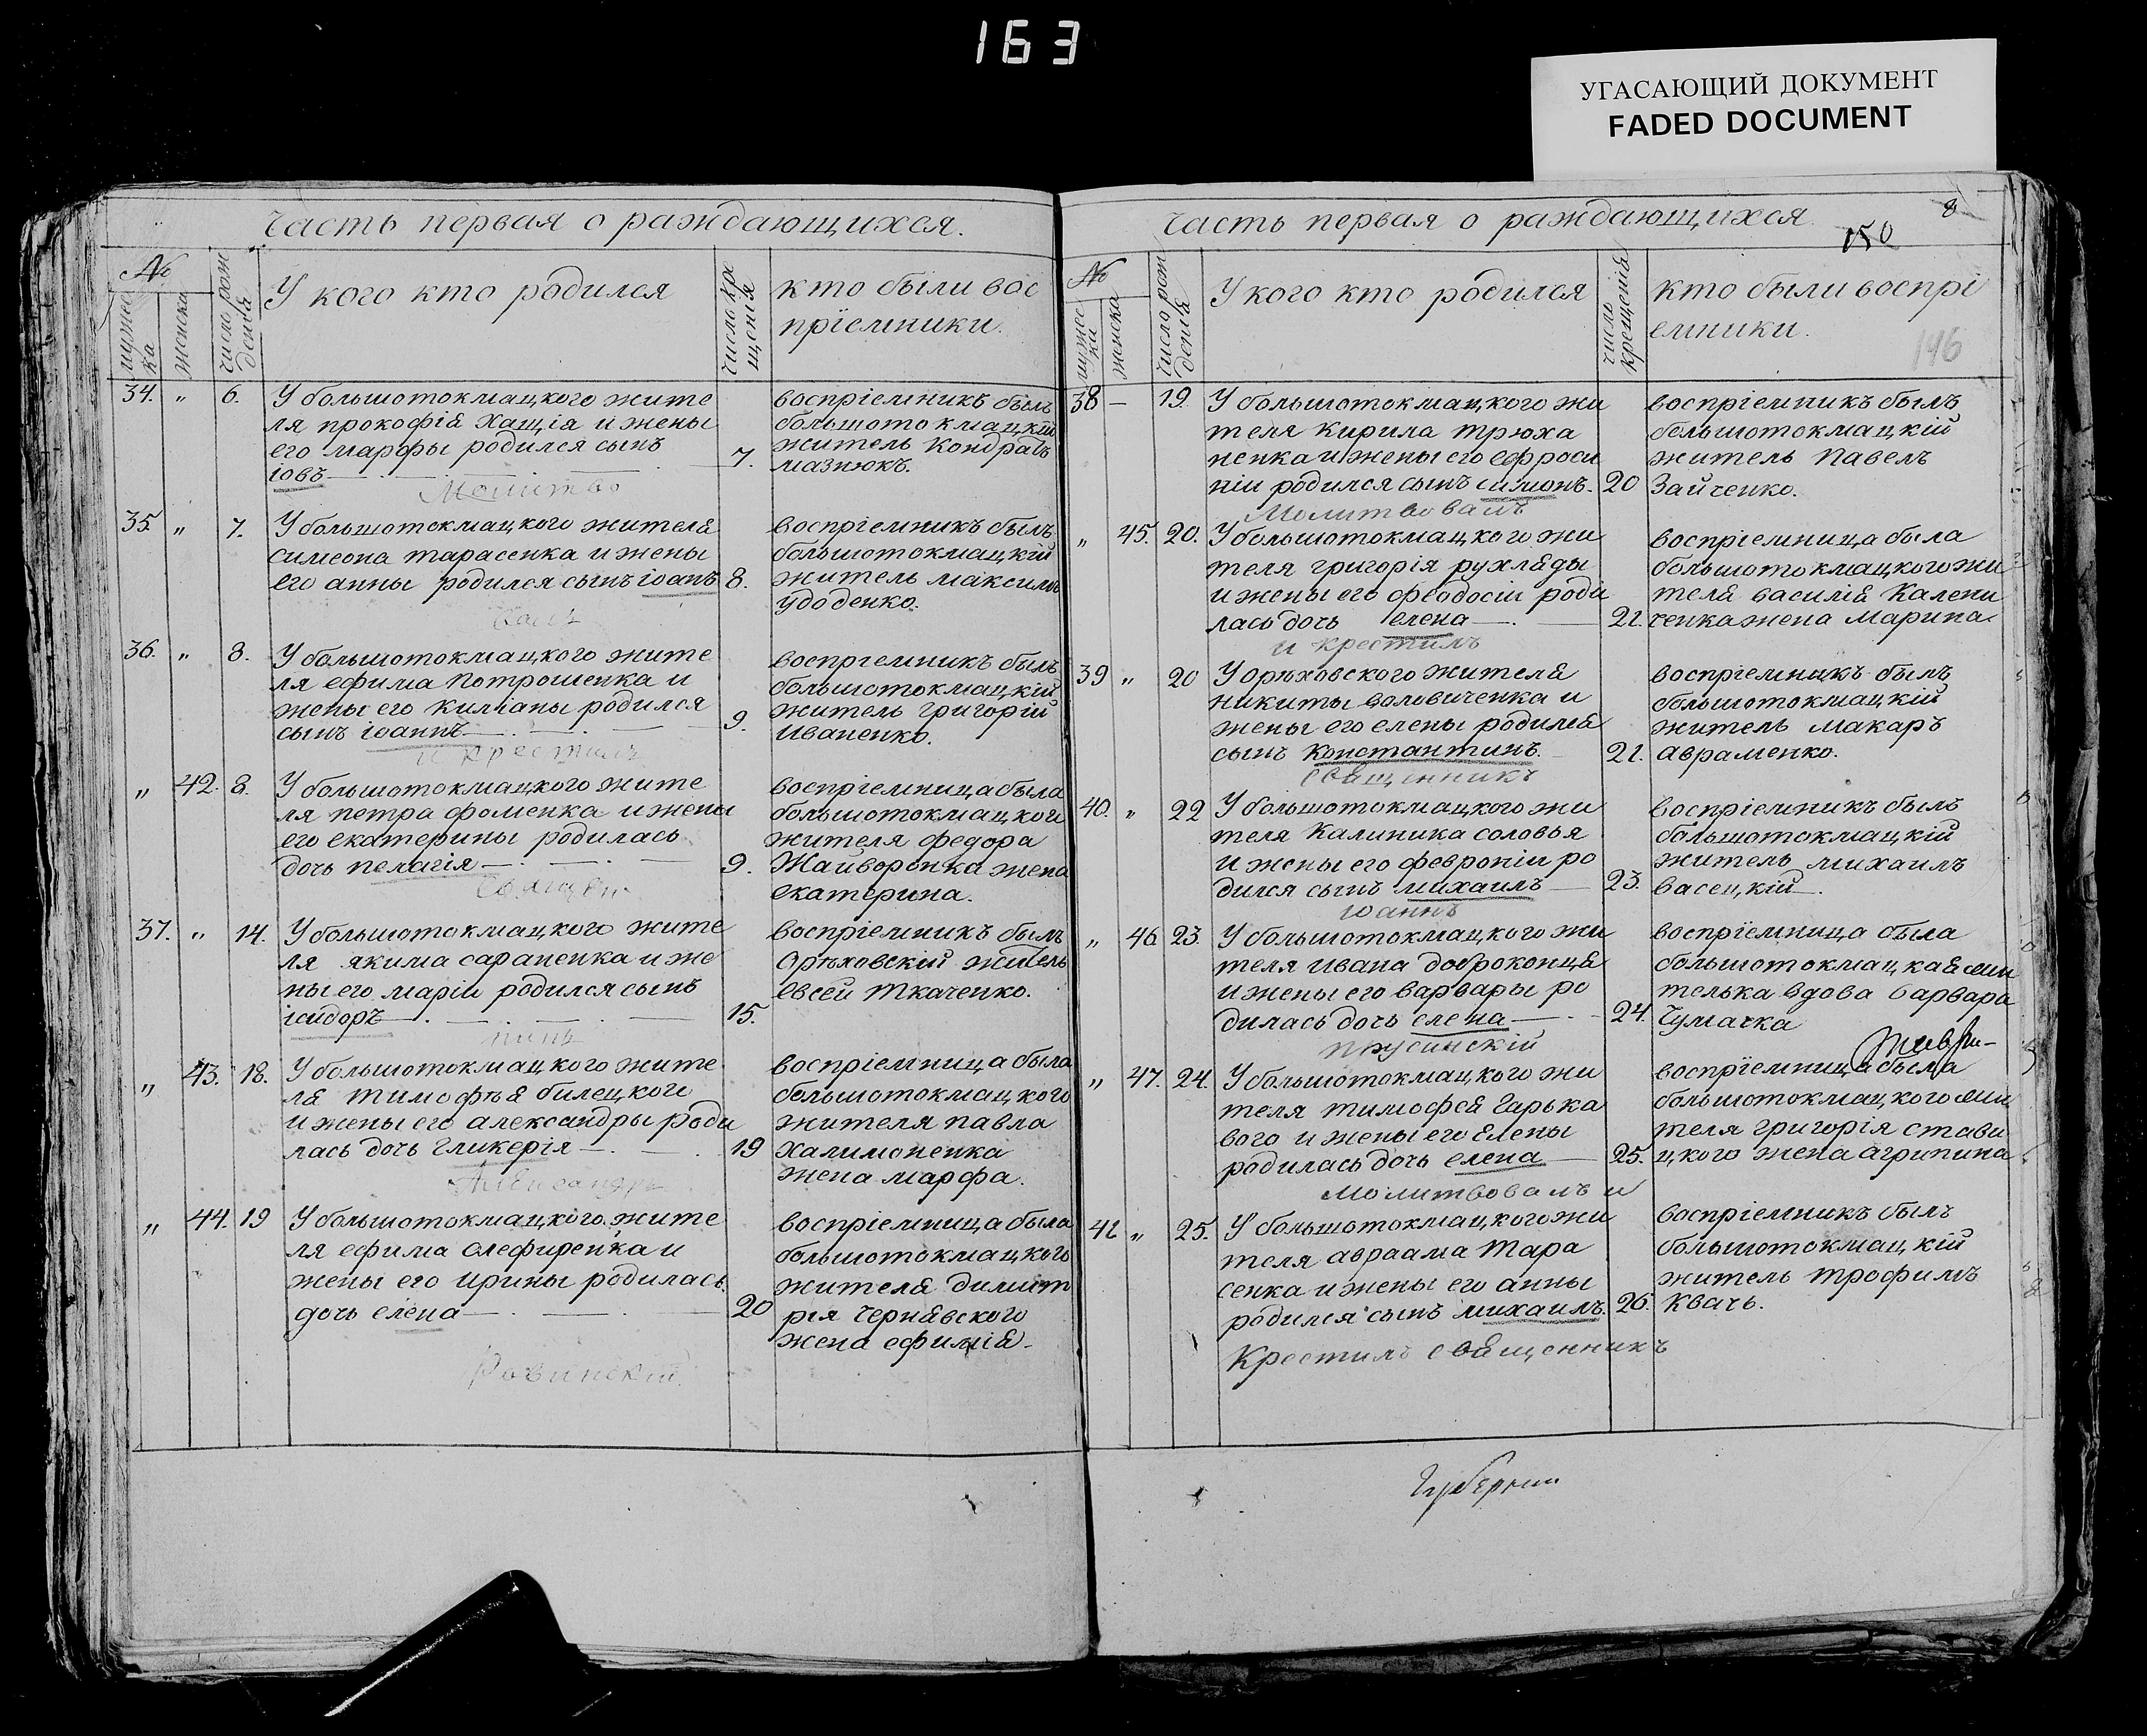 163
УГАСАЮЩИЙ ДОКУМЕНТ
FADED DOCUMENT
Часть первая о раждающихся.
№
мужеска
женска
число рождения
У кого кто родился
число крещения
кто были вос
прїемники.
34. " 6. У большотокмацкого жите
ля прокофія Хащія и жены
его марфы родился сынъ
іовъ 7.
воспріемникъ былъ
большотокмацкій
житель Кондратъ
мазнюкъ.
Молитво
35. " 7. У большотокмацкого жителя
симеона тарасенка и жены
его анны родился сынъ іоанъ 8.
воспріемникъ былъ
большотокмацкій
житель максимъ
удоденко.
валъ
36. " 8. У большотокмацкого жите
ля ефима Потрошенка и
жены его килианы родился
сынъ іоаннъ 9.
воспріемникъ былъ
большотокмацкій
житель григорій
Иваненко.
и крестилъ
" 42. 8. У большотокмацкого жите
ля петра фоменка и жены
его екатерины родилась
дочь пелагія 9.
воспріемница была
большотокмацкого
жителя федора
Жайворонка жена
екатерина.
Священ
37. " 14. У большотокмацкого жите
ля якима сараненка и же
ны его маріи родился сынъ
ісидоръ 15.
воспріемникъ былъ
Орѣховскій житель
Евсей Ткаченко.
никъ
" 43. 18. У большотокмацкого жите
ля тимофѣя билецкого
и жены его александры роди
лась дочь Гликерія 19
воспріемница была
большотокмацкого
жителя павла
Халимоненка
жена марфа.
Александръ
" 44. 19 У большотокмацкого жите
ля ефима олефиренка и
жены его ирины родилась
дочь елена 20
воспріемница была
большотокмацкого
жителя димит
рія чернявского
жена ефимія.
Ровинский
Часть первая о раждающихся
8
150
146
№
мужеска
женска
число рождения
У кого кто родился
число крещения
Кто были воспрі
емники.
38 — 19. У большотокмацкого жи
теля Кирила трюха
ненка и жены его ефроси
ніи родился сынъ симонъ. 20
воспріемникъ былъ
большотокмацкій
житель Павелъ
Зайченко.
Молитвовалъ
" 45. 20. У большотокмацкого жи
теля григорія рухляды
и жены его феодосіи роди
лась дочь елена 21.
воспріемница была
большотокмацкого жи
теля василія Калени
ченка жена Марина
и крестилъ
39 " 20 У орѣховского жителя
никиты воловиченка и
жены его елены родился
сынъ Константинъ. 21.
воспріемникъ былъ
большотокмацкій
житель макаръ
авраменко.
священникъ
40. " 22 У большотокмацкого жи
теля Калиника соловья
и жены его февроніи ро
дился сынъ михаилъ 23.
воспріемникъ былъ
большотокмацкій
житель михаилъ
васецкій.
Іоаннъ
" 46. 23. У большотокмацкого жи
теля ивана доброконця
и жены его варвары ро
дилась дочь елена 24.
воспрїемница была
большотокмацкая жи
телька вдова варвара
Чумачка
прусинскій
" 47. 24. У большотокмацкого жи
теля тимофея Гарька
вого и жены его Елены
родилась дочь елена 25.
воспрїемница была
большотокмацкого жи
теля григорія стави
цкого жена агрипина
Молитвовалъ и
41. " 25. У большотокмацкого жи
теля авраама тара
сенка и жены его анны
родился сынъ михаилъ. 26.
воспріемникъ былъ
большотокмацкій
житель трофимъ
Квачь.
Крестилъ священникъ
Губернии